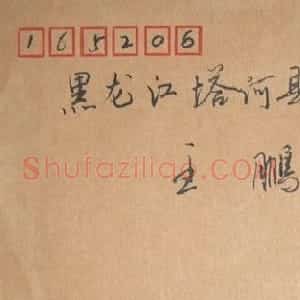 165206
黑龙江塔河县
王鹏
Shufaziliao.com